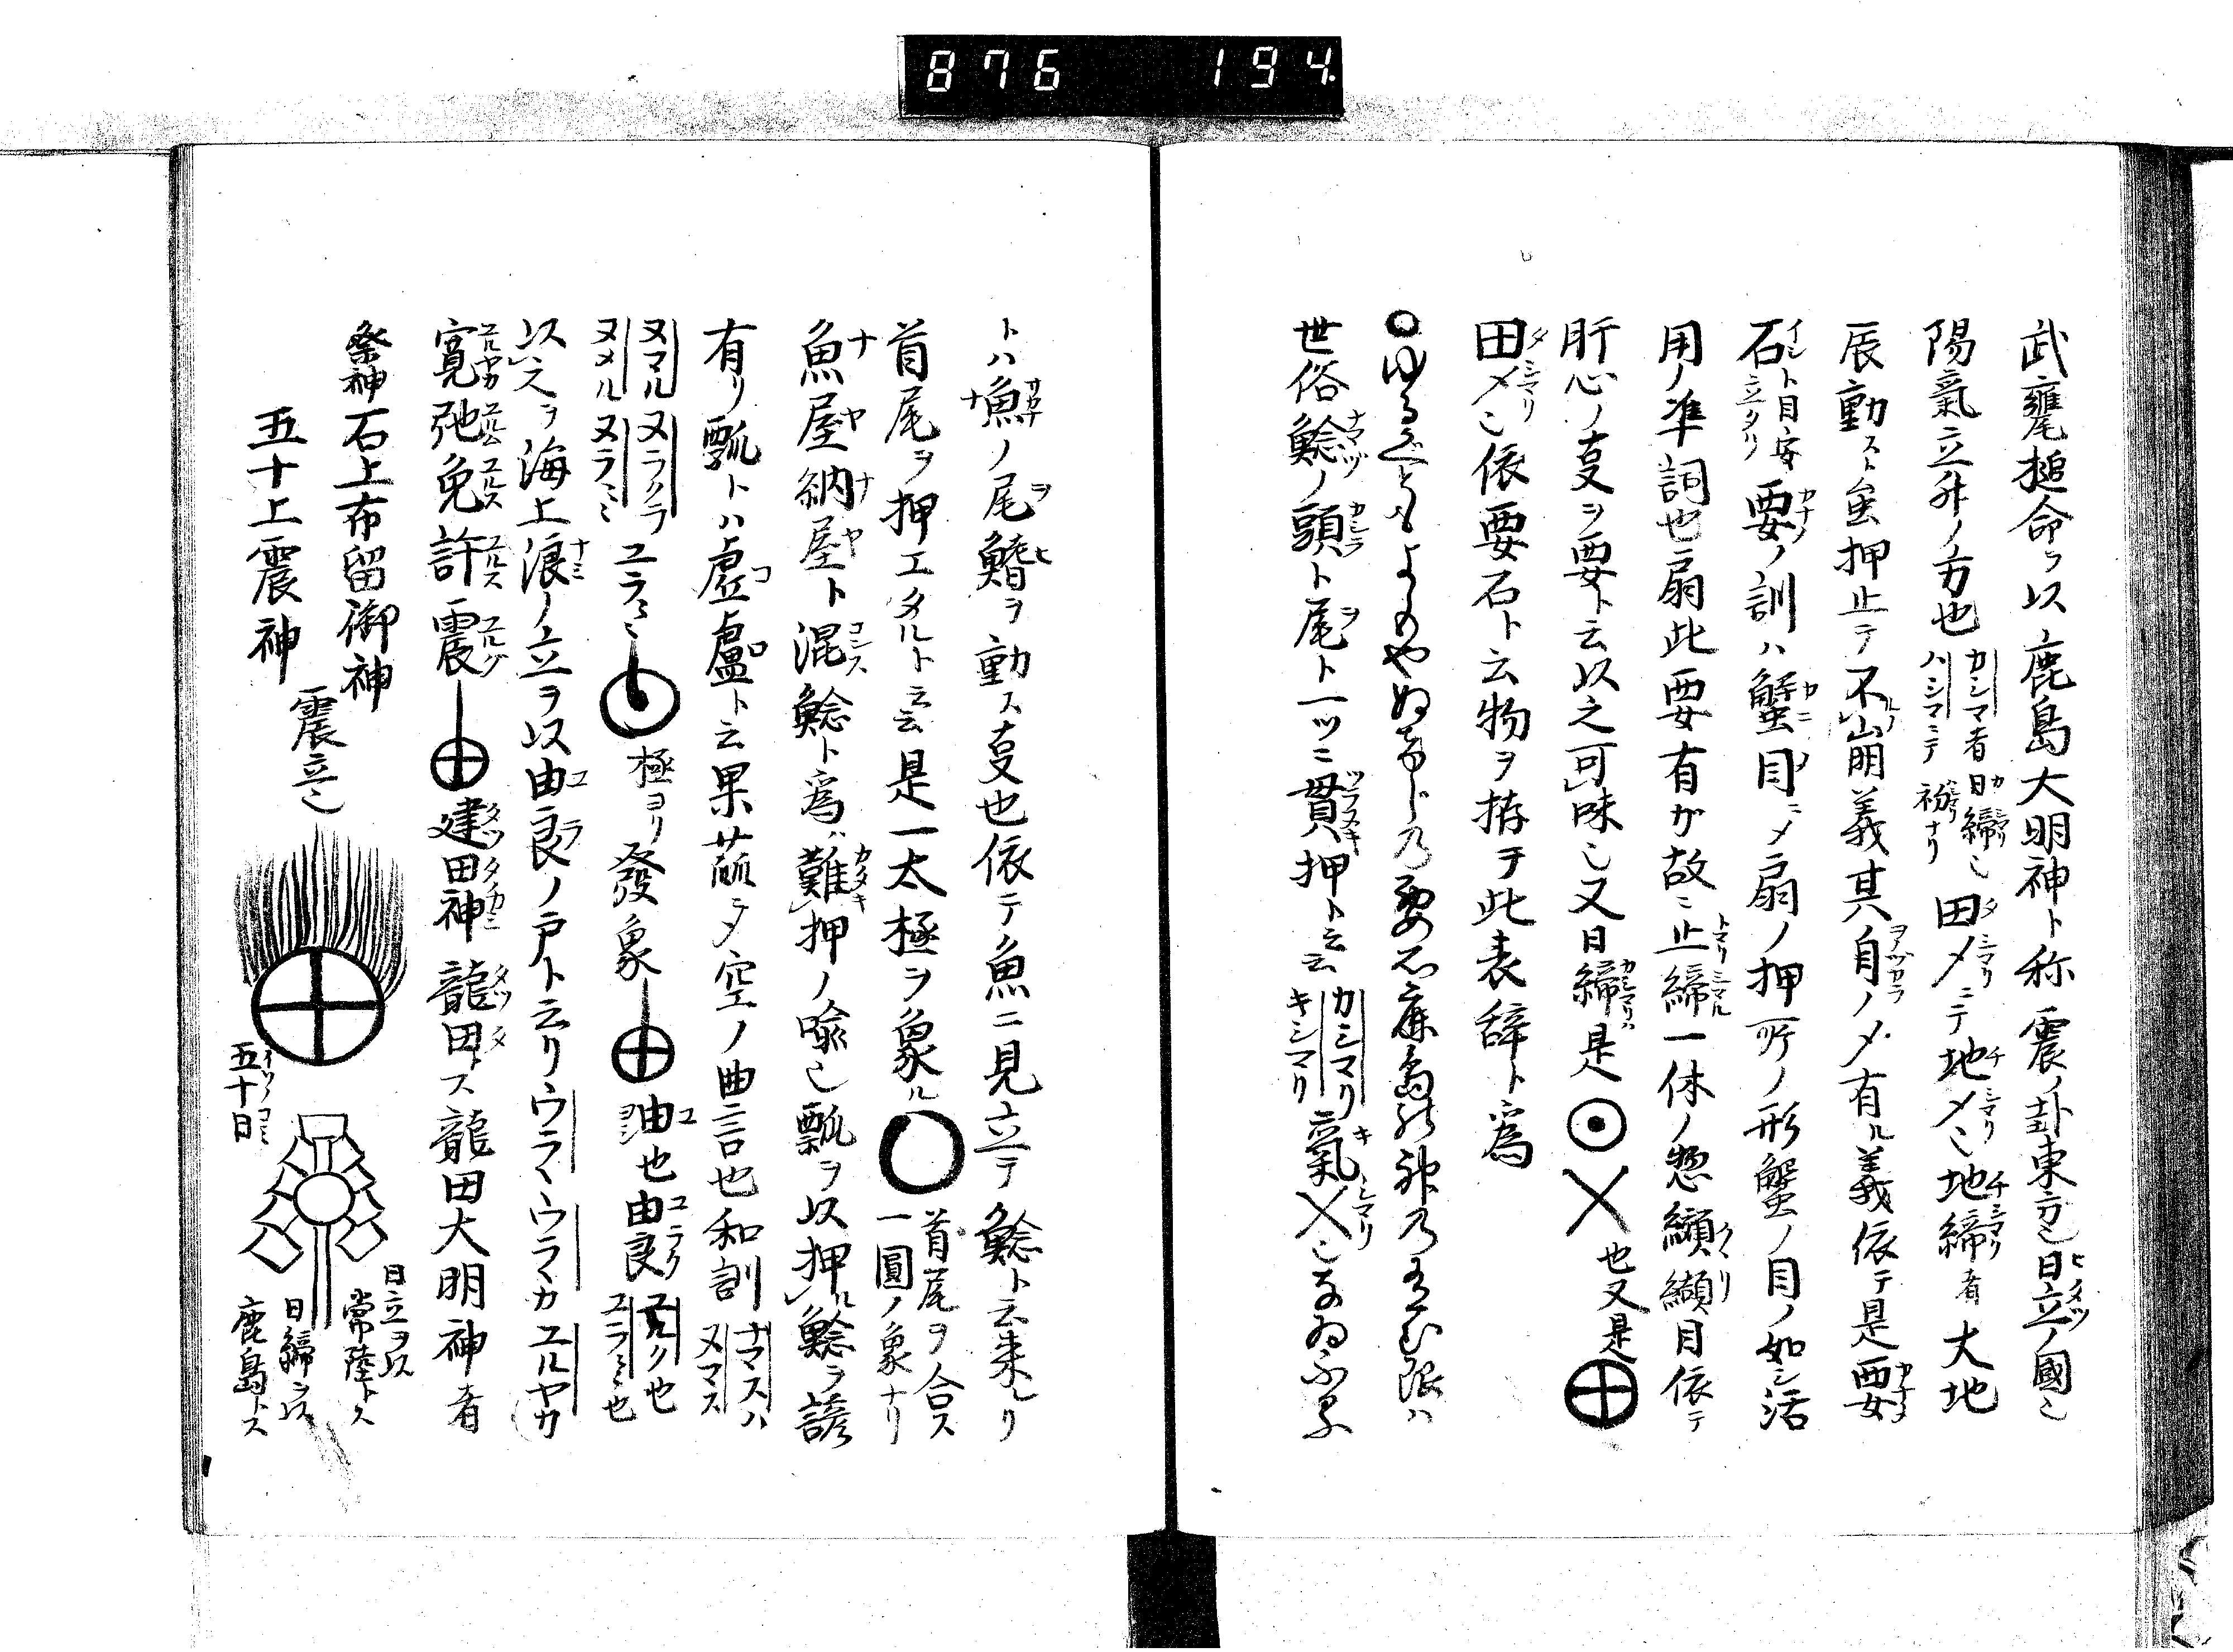 876 194
武甕槌命ヲ以鹿島大明神ト称震ノ卦東方也日立ノ國也
陽氣立升ノ方也 カシマ者日締也 ハシマニテ 田〆ニテ地〆也地締者大地
辰動スト虽押止テ不崩義其自ノ〆有ル義依テ是要
石ト目安 立タリ 要ノ訓ハ蟹目ニ〆扇ノ押所ノ形蟹ノ目ノ如シ活
用ノ準詞也扇此要有ガ故ニ止締一体ノ惣纐纈目依テ
肝心ノ叓ヲ要ト云以之可味也又日締是⦿〤也又是⊕
田〆也依要石ト云物ヲ拵テ此表辞ト為
○ゆるぐともよもやぬけじの要石鹿島の神のあらむ限ハ
世俗鯰ノ頭ト尾ト一ツニ貫押ト云 カシマリ キシマリ 氣〤也
トハ魚ノ尾鰭ヲ動ス叓也依テ魚ニ見立テ鯰ト云来レリ
首尾ヲ押エタルト云是一太極ヲ象ル○ 首尾ヲ合ス 一圓ノ象ナリ
魚屋納屋ト混鯰ト為ハ難押ノ喩也瓢ヲ以押ル鯰ヲ諺
有リ瓢トハ虚盧ト云果蓏ニ〆空ノ曲言也和訓 ナマスハ ヌマス
ヌマル ヌラクラ ヌメル ヌラミ ユラミ 極ヨリ發象⊕油也由良 ユルク也 ユラミ也
以之ヲ海上浪ノ立ヲ以由良ノ戸ト云リウラウラカユルヤカ
寛弛免許震⊕建田神龍田トス龍田大明神者
祭神石上布留御神
五十上震神 震立也
五十日
日立ヲ以
常陸トス
日締ヲ以
鹿島トス